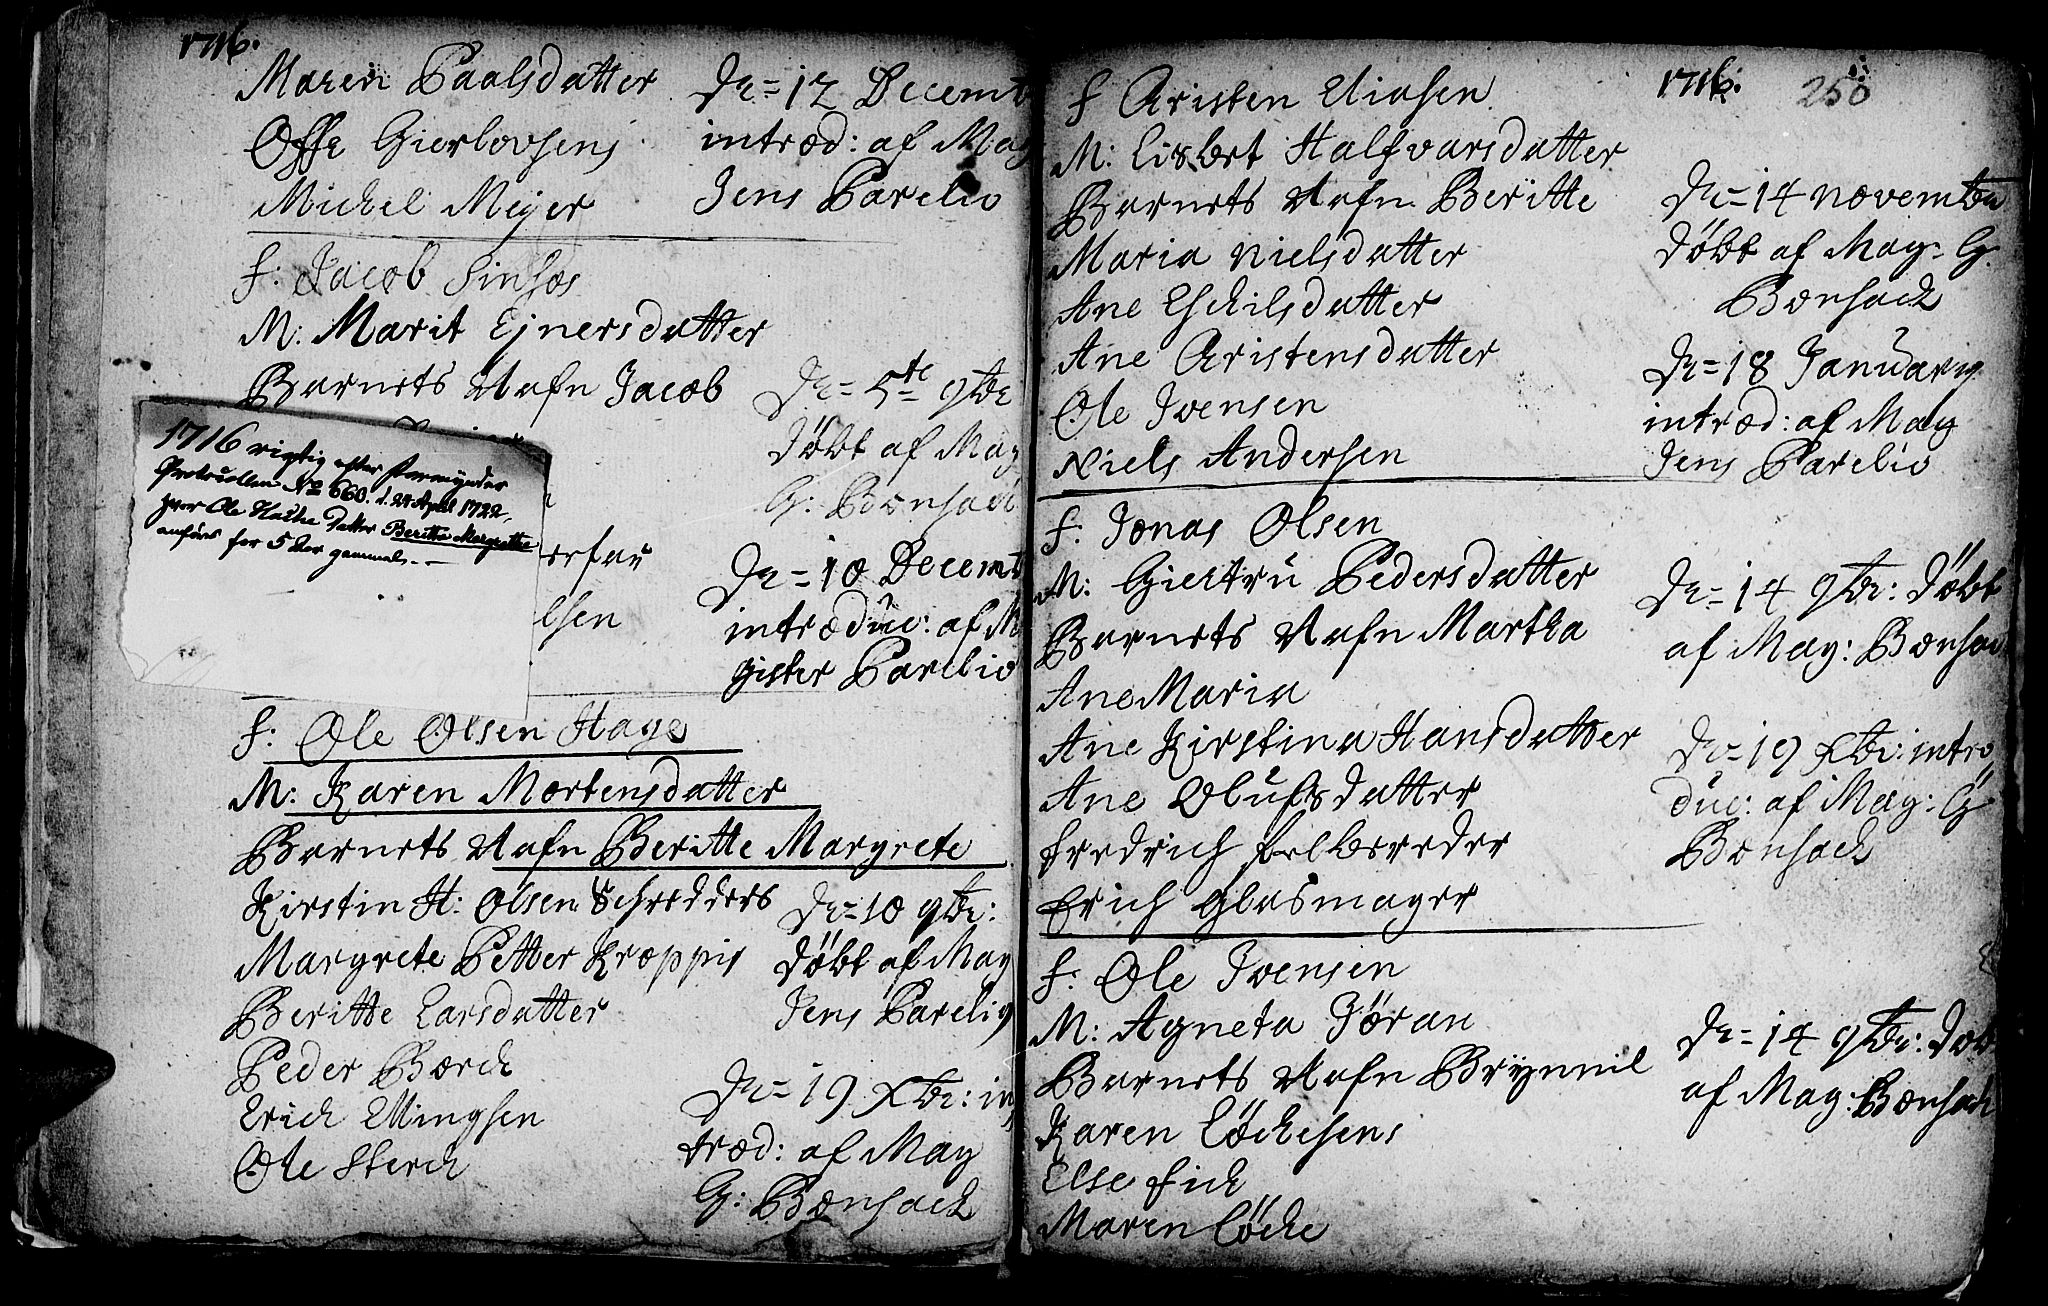 1716.
Maren Paalsdatter
Offe Gierlovsens
Michel Meyer
De= 12 Decemb
introd: af Mag
Jens Parelio
F: Jacob
M: Marit Ejnersdatter
Barnets Nafn Jacob
De= 5te 9br
döbt af Mag
G: Bonsach
1716 rigtig efter Formynder
Protocollen No 660. d. 24 April 1722,
hvor Ole Datter Beritte Margrethe
anföres for 5 Aar gammel. -
lsen
De= 10 Decemb
introduc: af M
gister Parelio
F: Ole Olsen Hage
M: Karen Mortensdatter
Barnets Nafn Beritte Margrete
Kirstin H: Olsen Schredders
Margrete Petter Kroppis
Beritte Larsdatter
Peder Borch
Erich Ellingsen
Ole Sterch
De= 10 9br:
döbt af Mag
Jens Parelio
De= 19 Xbr: in
trod: af Mag
G: Bonsach
1716.
250
F Cristen Eliasen
M: Lisbet Halfvarsdatter
Barnets Nafn Beritte
Maria Nielsdatter
Ane Eschilsdatter
Ane Cristensdatter
Ole Ivensen
Niels Andersen
De= 14 november
döbt af Mag= G.
Bonsach
De= 18 Januarij
introd: af Mag
Jens Parelio
F: Jonas Olsen
M: Giertru Pedersdatter
Barnets Nafn Martha
Ane Maria
Ane Kirstina Hansdatter
Ane Olufsdatter
Fredrich Felbereder
Erich Glasmager
De= 14 9br: döbt
af Mag: Bonsac
De= 19 Xbr: intro
duc: af Mag: G
Bonsach
F: Ole Ivensen
M: Agneta Jöran
Barnets Nafn Brynnil
Karen Löchesens
Else Fich
Maren Löche
De= 14 9br: döb
af Mag: Bonsach